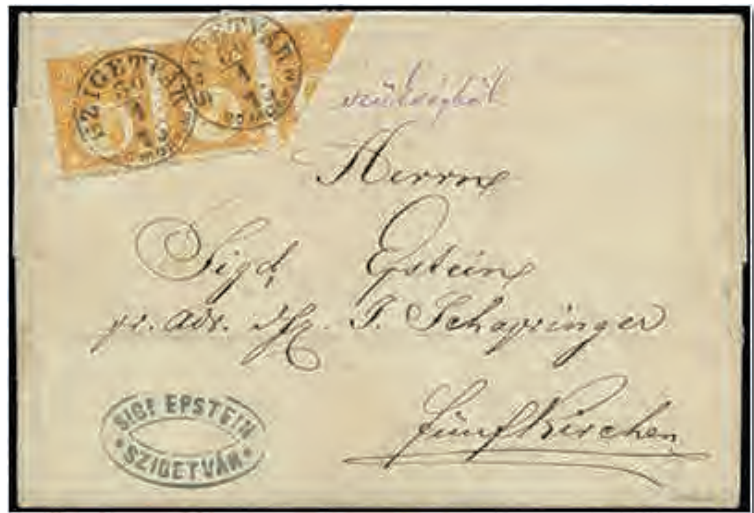 SZIGETVÁR
30
1
SZIGETVÁR
30
1
szükségből
Herrn
Sigd. Epstein
pr. Adr. J. Schapringer
Fünfkirchen
SIGd EPSTEIN
SZIGETVÁR